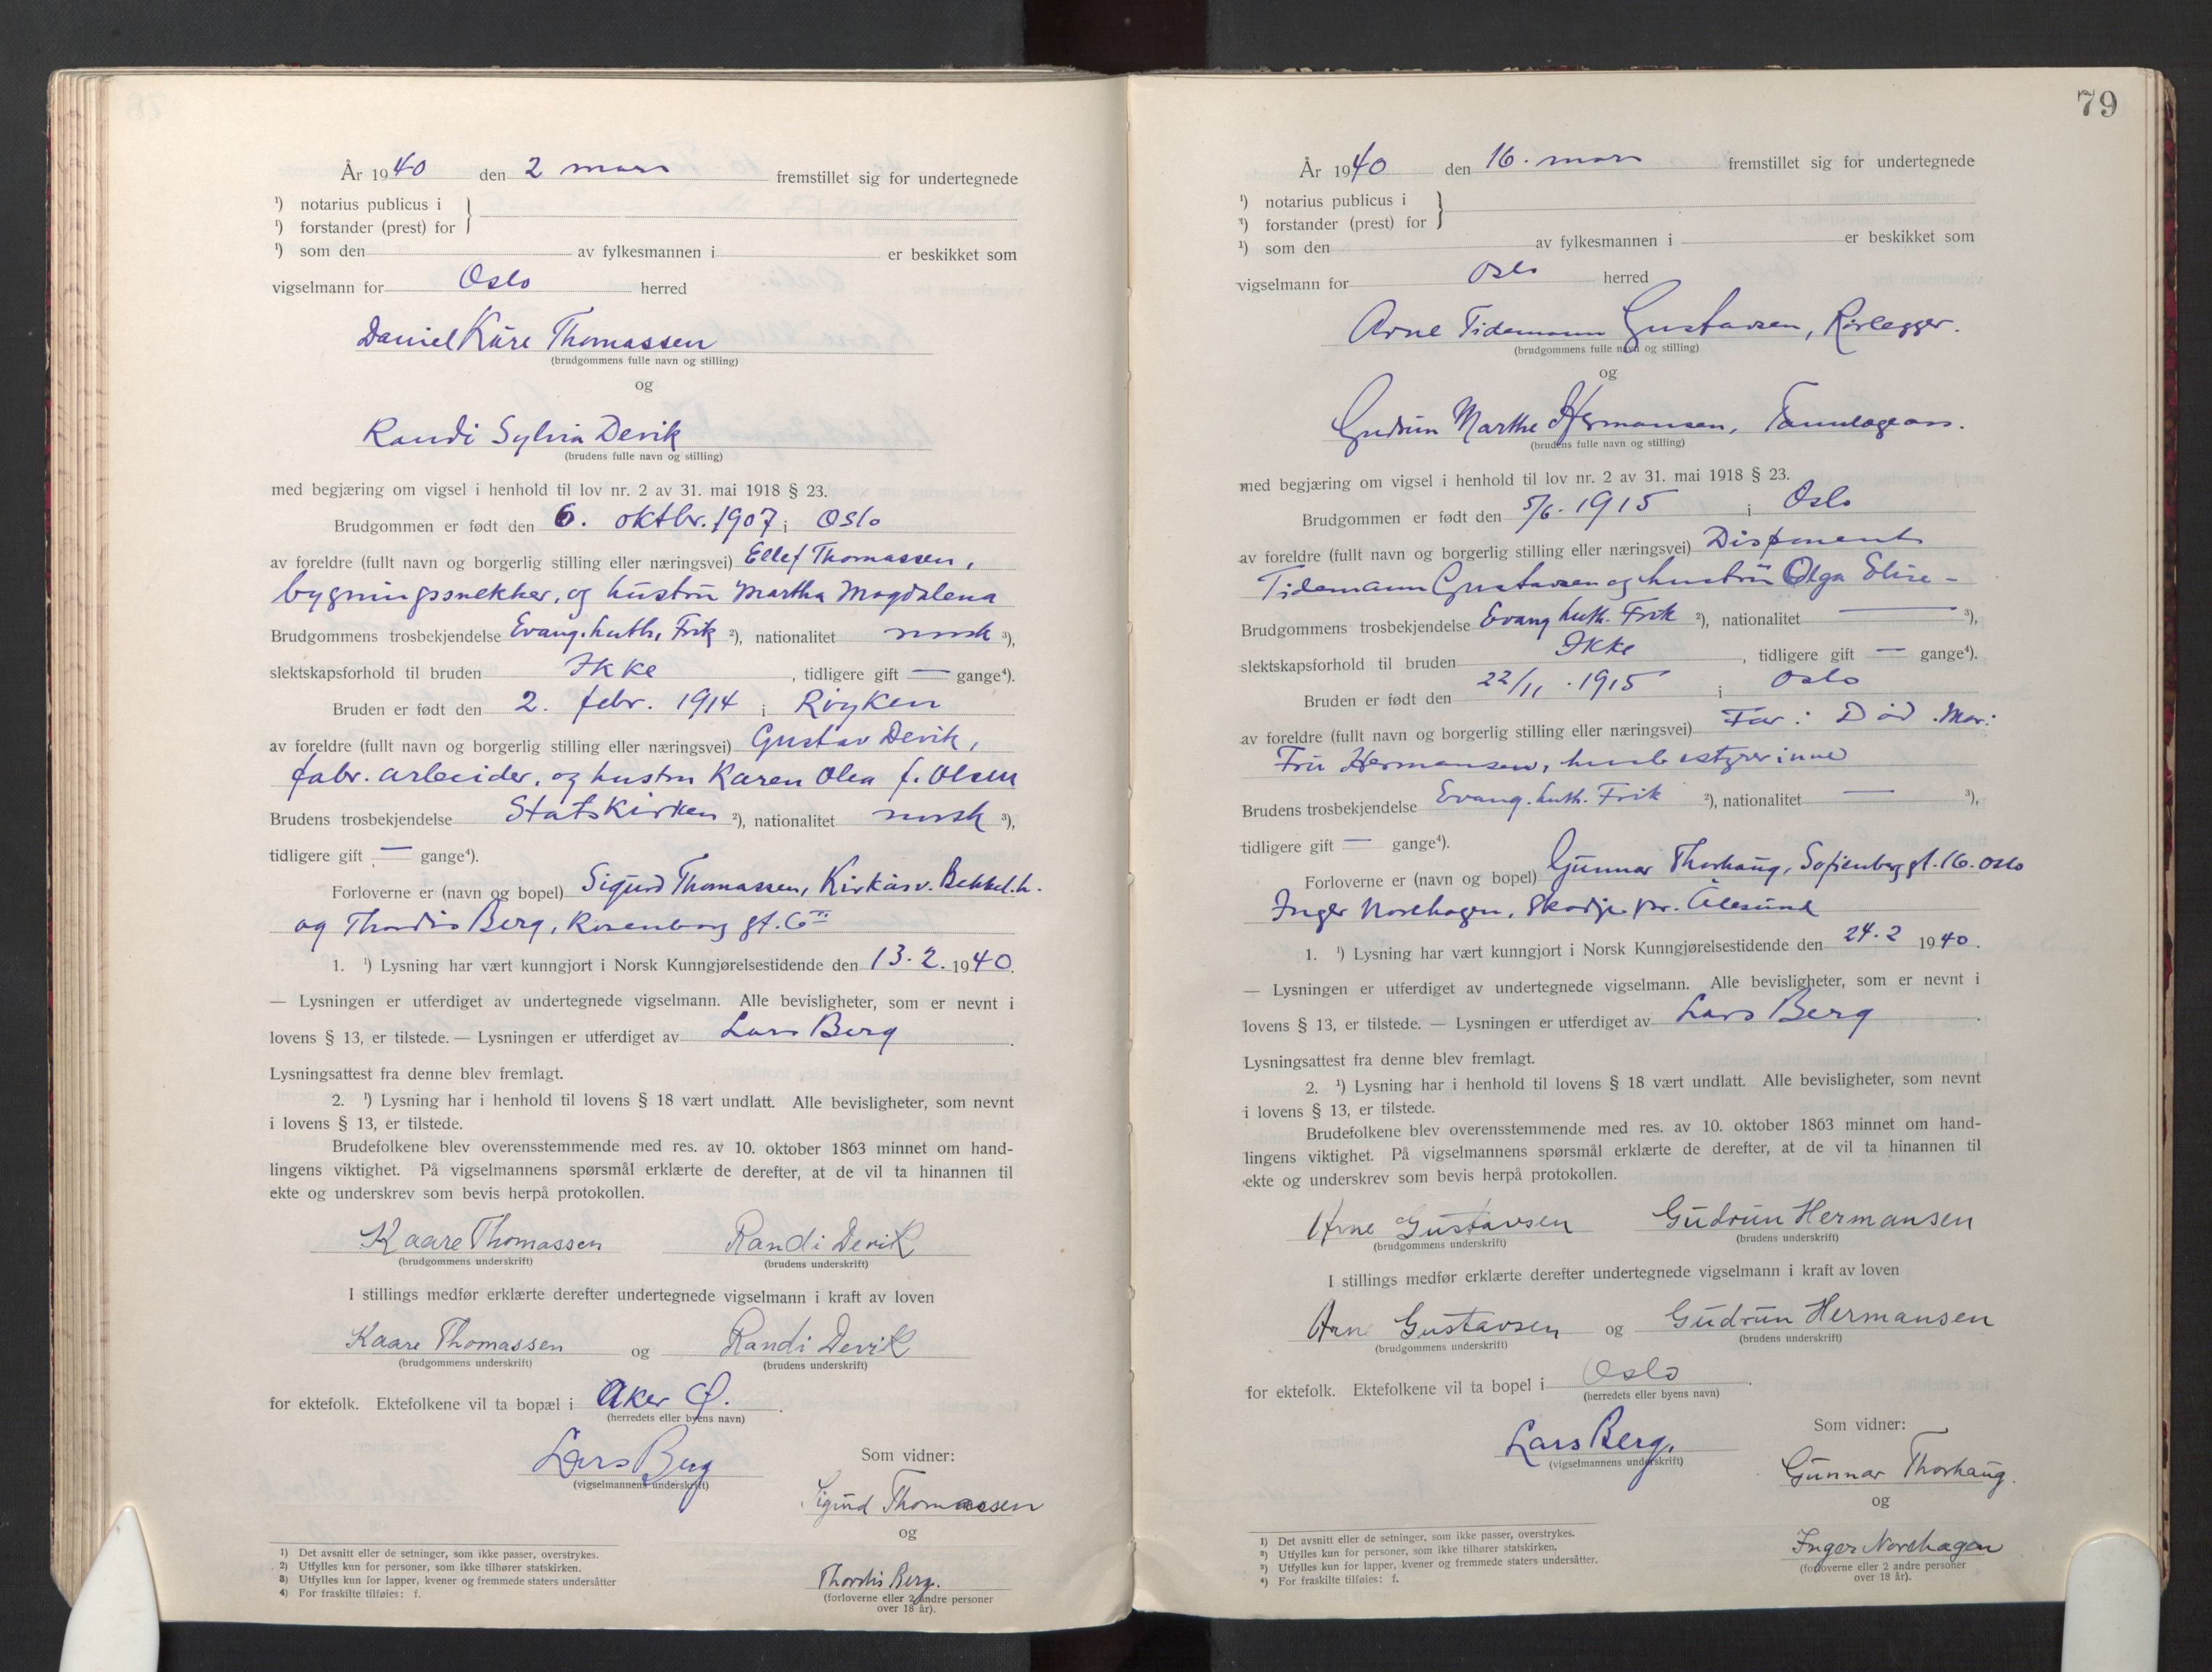 År 1940 den 2 mars fremstillet sig for undertegnede
¹) notarius publicus i
¹) forstander (prest) for
¹) som den av fylkesmannen i er beskikket som
vigselmann for Oslo herred
Daniel Kåre Thomassen
(brudgommens fulle navn og stilling)
og
Randi Sylvia Devik
(brudens fulle navn og stilling)
med begjæring om vigsel i henhold til lov nr. 2 av 31. mai 1918 § 23.
Brudgommen er født den 6. oktbr. 1907 i Oslo
av foreldre (fullt navn og borgerlig stilling eller næringsvei) Ellef Thomassen,
bygningssnekker, og hustru Martha Magdalena
Brudgommens trosbekjendelse Evang. luth. Frik ²), nationalitet norsk ³),
slektskapsforhold til bruden Ikke, tidligere gift — gange⁴).
Bruden er født den 2. febr. 1914 i Røyken
av foreldre (fullt navn og borgerlig stilling eller næringsvei) Gustav Devik,
fabr. arbeider, og hustru Karen Olea f. Olsen
Brudens trosbekjendelse Statskirken ²), nationalitet norsk ³),
tidligere gift — gange⁴).
Forloverne er (navn og bopel) Sigurd Thomassen, Kirkåsv. Bekkel.h.
og Thordis Berg, Rosenborg gt. 6 III
1. ¹) Lysning har vært kunngjort i Norsk Kunngjørelsestidende den 13.2.1940.
— Lysningen er utferdiget av undertegnede vigselmann. Alle bevisligheter, som er nevnt i
lovens § 13, er tilstede. — Lysningen er utferdiget av Lars Berg.
Lysningsattest fra denne blev fremlagt.
2. ¹) Lysning har i henhold til lovens § 18 vært undlatt. Alle bevisligheter, som nevnt
i lovens § 13, er tilstede.
Brudefolkene blev overensstemmende med res. av 10. oktober 1863 minnet om hand-
lingens viktighet. På vigselmannens spørsmål erklærte de derefter, at de vil ta hinannen til
ekte og underskrev som bevis herpå protokollen.
Kaare Thomassen Randi Devik
(brudgommens underskrift) (brudens underskrift)
I stillings medfør erklærte derefter undertegnede vigselmann i kraft av loven
Kaare Thomassen og Randi Devik
(brudgommens underskrift) (brudens underskrift)
for ektefolk. Ektefolkene vil ta bopæl i Aker Ø.
(herredets eller byens navn)
Lars Berg
(vigselmannens underskrift)
Som vidner:
Sigurd Thomassen
og
Thordis Berg.
(forloverne eller 2 andre personer
over 18 år).
1) Det avsnitt eller de setninger, som ikke passer, overstrykes.
2) Utfylles kun for personer, som ikke tilhører statskirken.
3) Utfylles kun for lapper, kvener og fremmede staters undersåtter
4) For fraskilte tilføies: f.
79
År 1940 den 16. mars fremstillet sig for undertegnede
¹) notarius publicus i
¹) forstander (prest) for
¹) som den av fylkesmannen i er beskikket som
vigselmann for Oslo herred
Arne Tidemann Gustavsen, Rørlegger.
(brudgommens fulle navn og stilling)
og
Gudrun Marthe Hermansen, Tannlægeass.
(brudens fulle navn og stilling)
med begjæring om vigsel i henhold til lov nr. 2 av 31. mai 1918 § 23.
Brudgommen er født den 5/6. 1915 i Oslo
av foreldre (fullt navn og borgerlig stilling eller næringsvei) Disponent
Tidemann Gustavsen og hustru Olga Elise -
Brudgommens trosbekjendelse Evang luth. Frik ²), nationalitet — ³),
slektskapsforhold til bruden Ikke, tidligere gift — gange⁴).
Bruden er født den 22/11. 1915 i Oslo
av foreldre (fullt navn og borgerlig stilling eller næringsvei) Far: Død. Mor:
Fru Hermansen, husbestyrerinne
Brudens trosbekjendelse Evang. luth. Frik ²), nationalitet — ³),
tidligere gift — gange⁴).
Forloverne er (navn og bopel) Gunnar Thorhaug, Sofienberg gt. 16. Oslo
Inger Norehagen, Skodje pr. Ålesund
1. ¹) Lysning har vært kunngjort i Norsk Kunngjørelsestidende den 24.2 1940.
— Lysningen er utferdiget av undertegnede vigselmann. Alle bevisligheter, som er nevnt i
lovens § 13, er tilstede. — Lysningen er utferdiget av Lars Berg.
Lysningsattest fra denne blev fremlagt.
2. ¹) Lysning har i henhold til lovens § 18 vært undlatt. Alle bevisligheter, som nevnt
i lovens § 13, er tilstede.
Brudefolkene blev overensstemmende med res. av 10. oktober 1863 minnet om hand-
lingens viktighet. På vigselmannens spørsmål erklærte de derefter, at de vil ta hinannen til
ekte og underskrev som bevis herpå protokollen.
Arne Gustavsen Gudrun Hermansen
(brudgommens underskrift) (brudens underskrift)
I stillings medfør erklærte derefter undertegnede vigselmann i kraft av loven
Arne Gustavsen og Gudrun Hermansen
(brudgommens underskrift) (brudens underskrift)
for ektefolk. Ektefolkene vil ta bopel i Oslo.
(herredets eller byens navn)
Lars Berg.
(vigselmannens underskrift)
Som vidner:
Gunnar Thorhaug.
og
Inger Norehagen
(forloverne eller 2 andre personer
over 18 år).
1) Det avsnitt eller de setninger, som ikke passer, overstrykes.
2) Utfylles kun for personer, som ikke tilhører statskirken.
3) Utfylles kun for lapper, kvener og fremmede staters undersåtter.
4) For fraskilte tilføies: f.